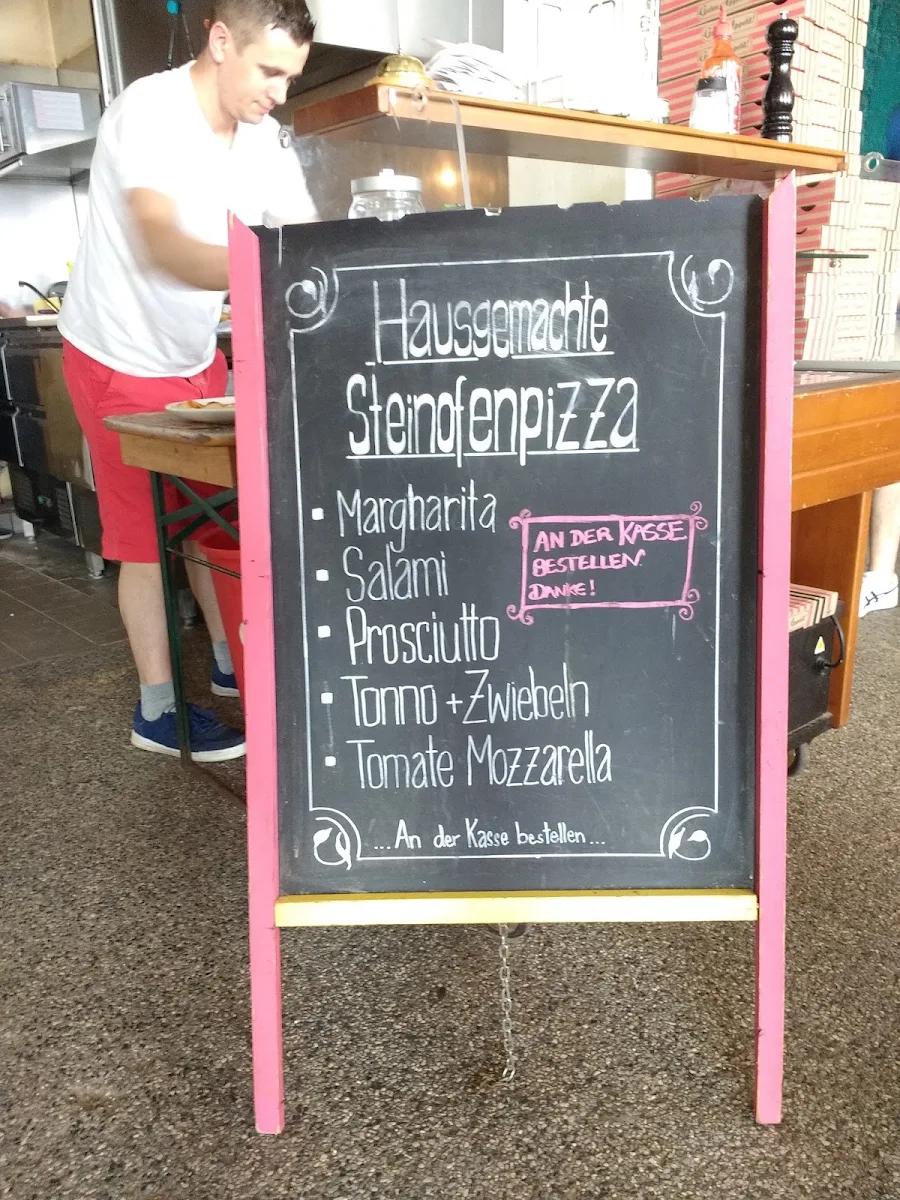 Hausgemachte
Steinofenpizza
Margharita
Salami
Prosciutto
Tonno + Zwiebeln
Tomate Mozzarella
AN DER KASSE
BESTELLEN!
DANKE!
...An der Kasse bestellen...